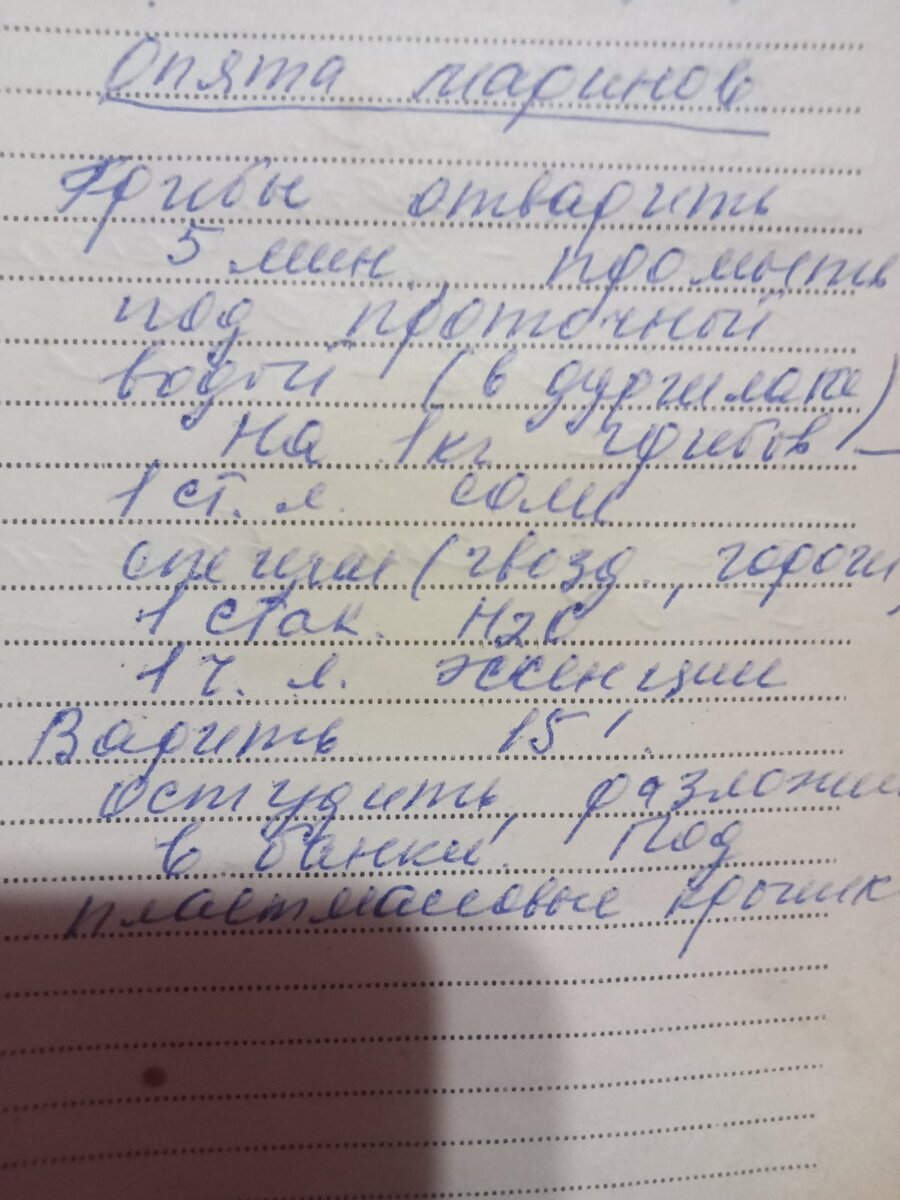 Опята маринов.
Грибы отварить
5 мин, промыть
под проточный
водой (в дуршлаке)
На 1 кг грибов –
1 ст. л. соли
специи (гвозд., горош)
1 стак. H2O
1 ч. л. эссенции
Варить 15'.
остудить, разложит
в банки. Под
пластмассовые крышк